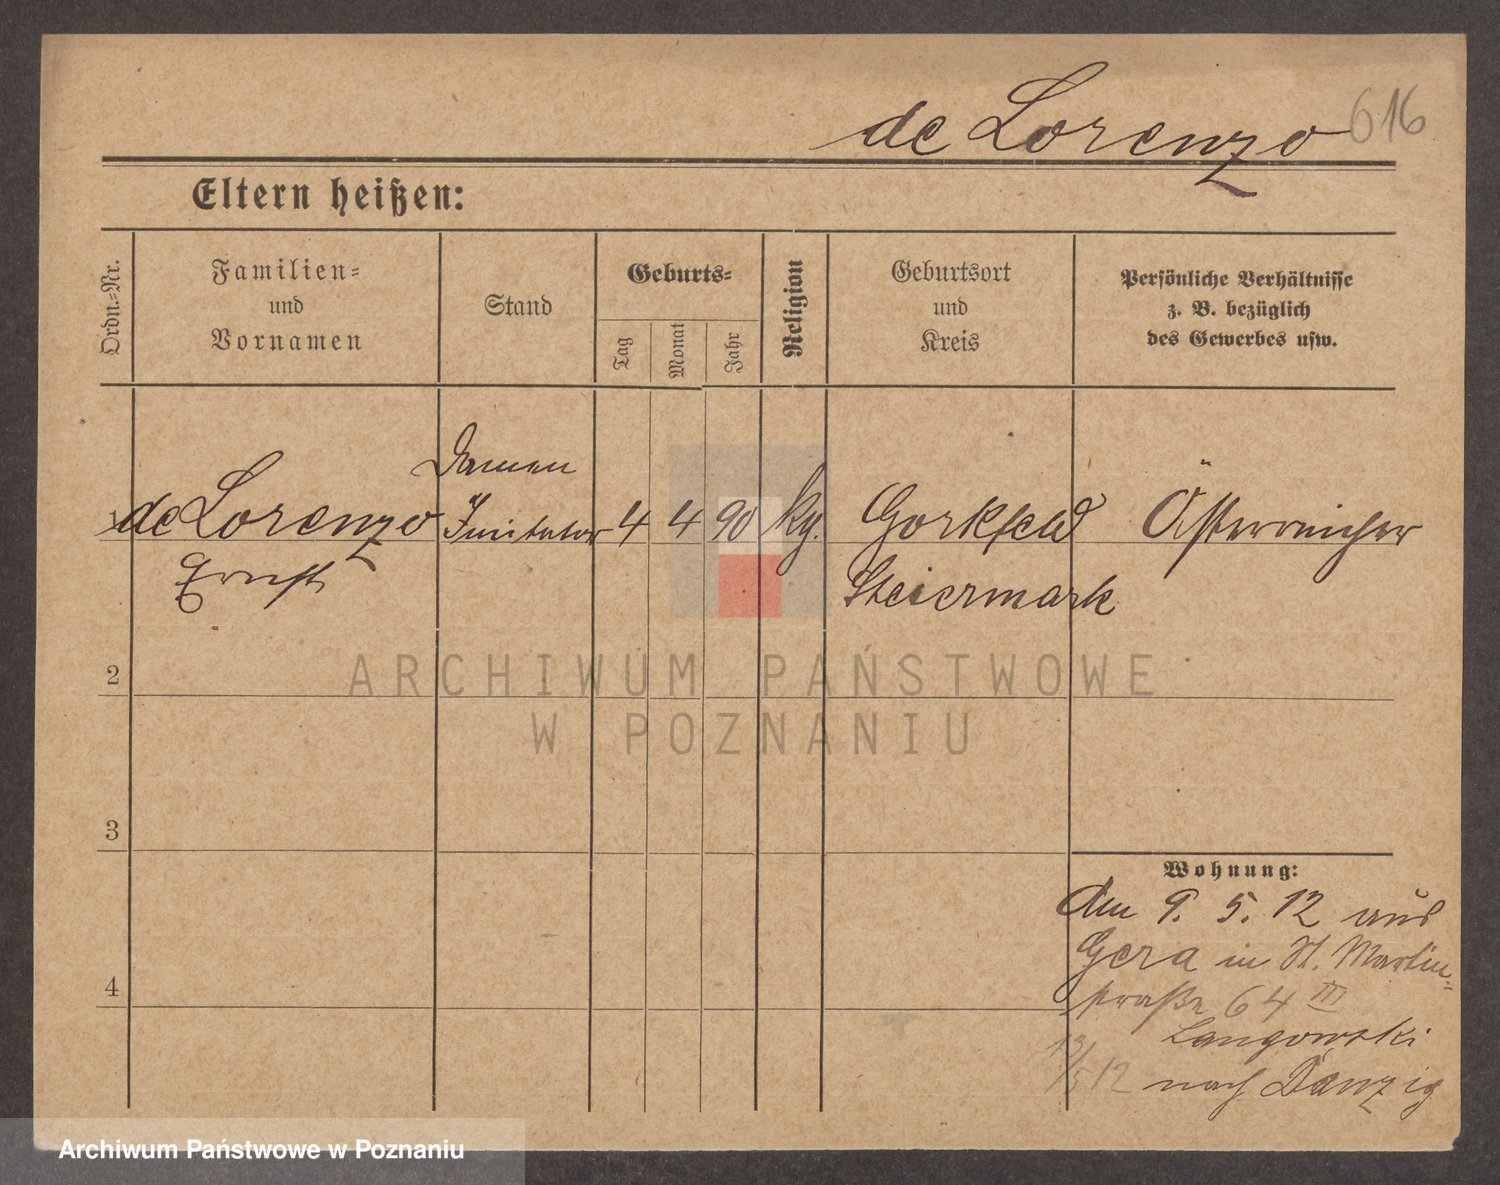 de Lorenzo 616
Eltern heißen:
Ordn.-Nr.
Familien-
und
Vornamen
Stand
Geburts-
Tag
Monat
Jahr
Religion
Geburtsort
und
Kreis
Persönliche Verhältnisse
z. B. bezüglich
des Gewerbes usw.
de Lorenzo
Ernst
Damen
Imitator
4 4 90
kg.
Gorkfeld
Steiermark
Österreicher
2
3
4
Wohnung:
Am 9. 5. 12 aus
Gera in St. Martin-
straße 64 III
Langowski
13/5 12 nach Danzig
ARCHIWUM PAŃSTWOWE
W POZNANIU
Archiwum Państwowe w Poznaniu